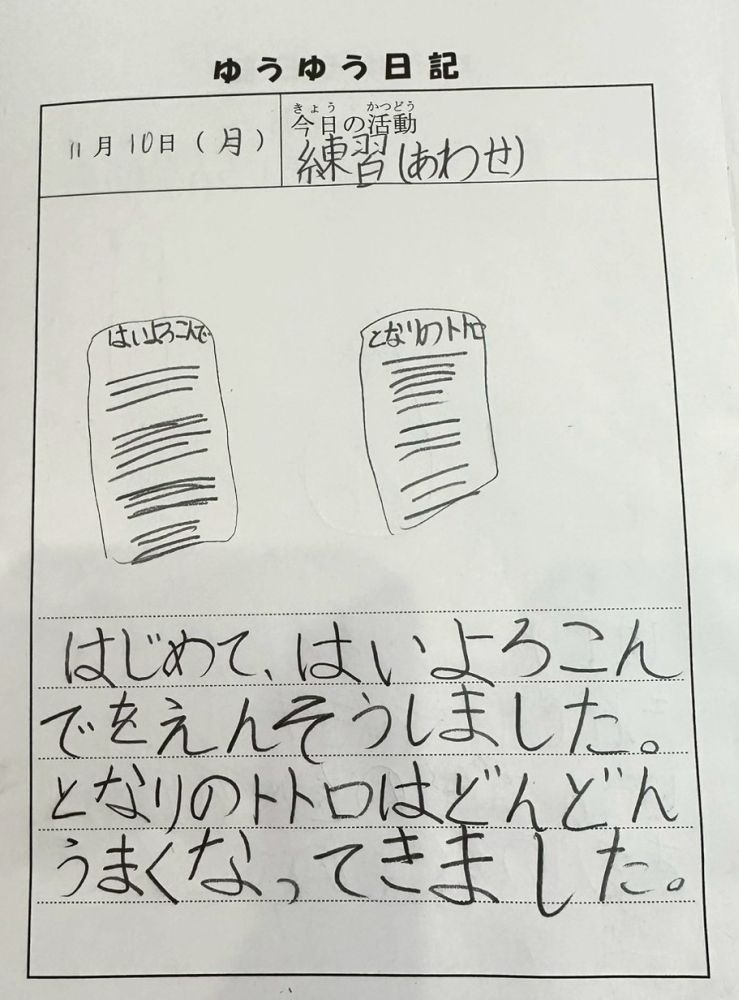 ゆうゆう日記
11月10日(月)
きょう かつどう
今日の活動
練習(あわせ)
はいよろこんで
となりのトトロ
はじめて、はいよろこん
でをえんそうしました。
となりのトトロはどんどん
うまくなってきました。